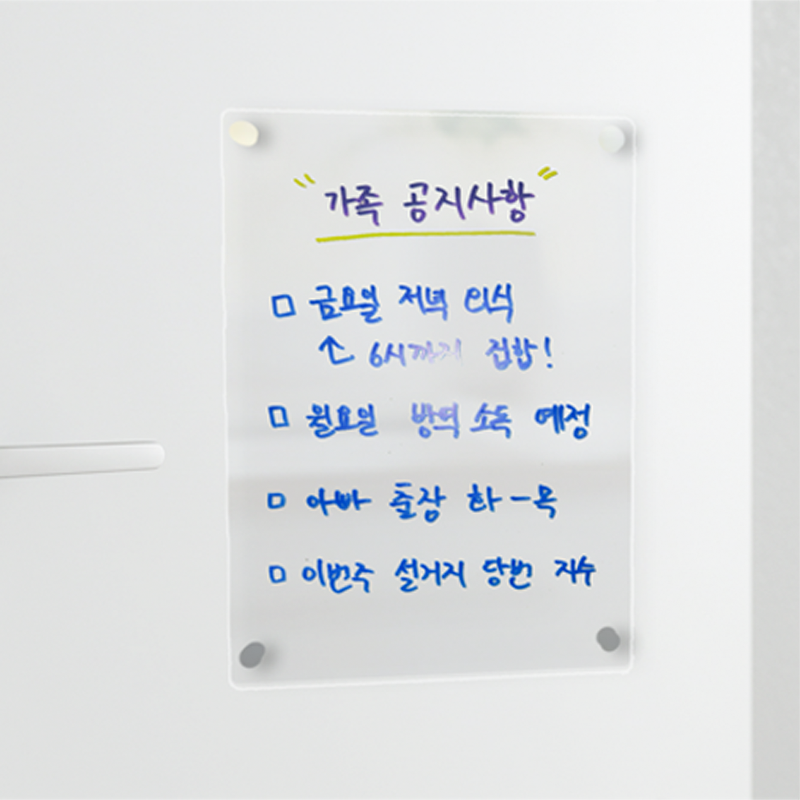 "가족 공지사항"
□ 금요일 저녁 외식
↑ 6시까지 집합!
□ 월요일 방역 소독 예정
□ 아빠 출장 화-목
□ 이번주 설거지 당번 지수